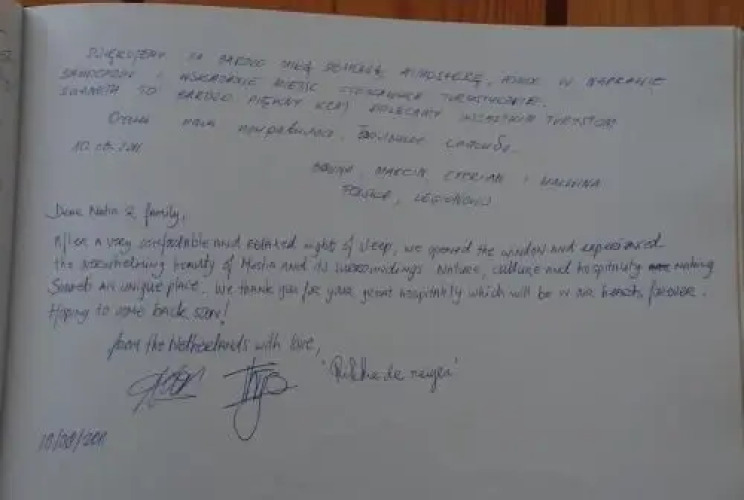 DZIĘKUJEMY ZA BARDZO MIŁĄ DOMOWĄ ATMOSFERĘ, POMOC W NAPRAWIE
SAMOCHODU I WSKAZANIE MIEJSC CIEKAWYCH TURYSTYCZNIE.
SWANETIA TO BARDZO PIĘKNY KRAJ POLECAMY WSZYSTKIM TURYSTOM
Очень нам понравилось, большое спасибо.
MARCIN, CYPRIAN I MALWINA
POLSKA, LEGIONOWO
Dear Natia & family,
After a very comfortable and relaxed night of sleep, we opened the window and experienced
the overwhelming beauty of Mestia and its surroundings. Nature, culture and hospitality making
Svaneti an unique place. We thank you for your great hospitality which will be in our hearts forever.
Hoping to come back soon!
from the Netherlands with love,
10/08/2011